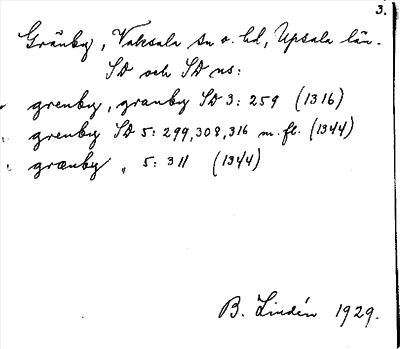 3.
Gränby, Vaksala sn o. hd, Upsala län.
SD och SD ns:
grenby, granby SD 3: 259 (1316)
grenby SD 5: 299, 308, 316 m. fl. (1344)
grænby „ 5: 311 (1344)
B. Lindén 1929.